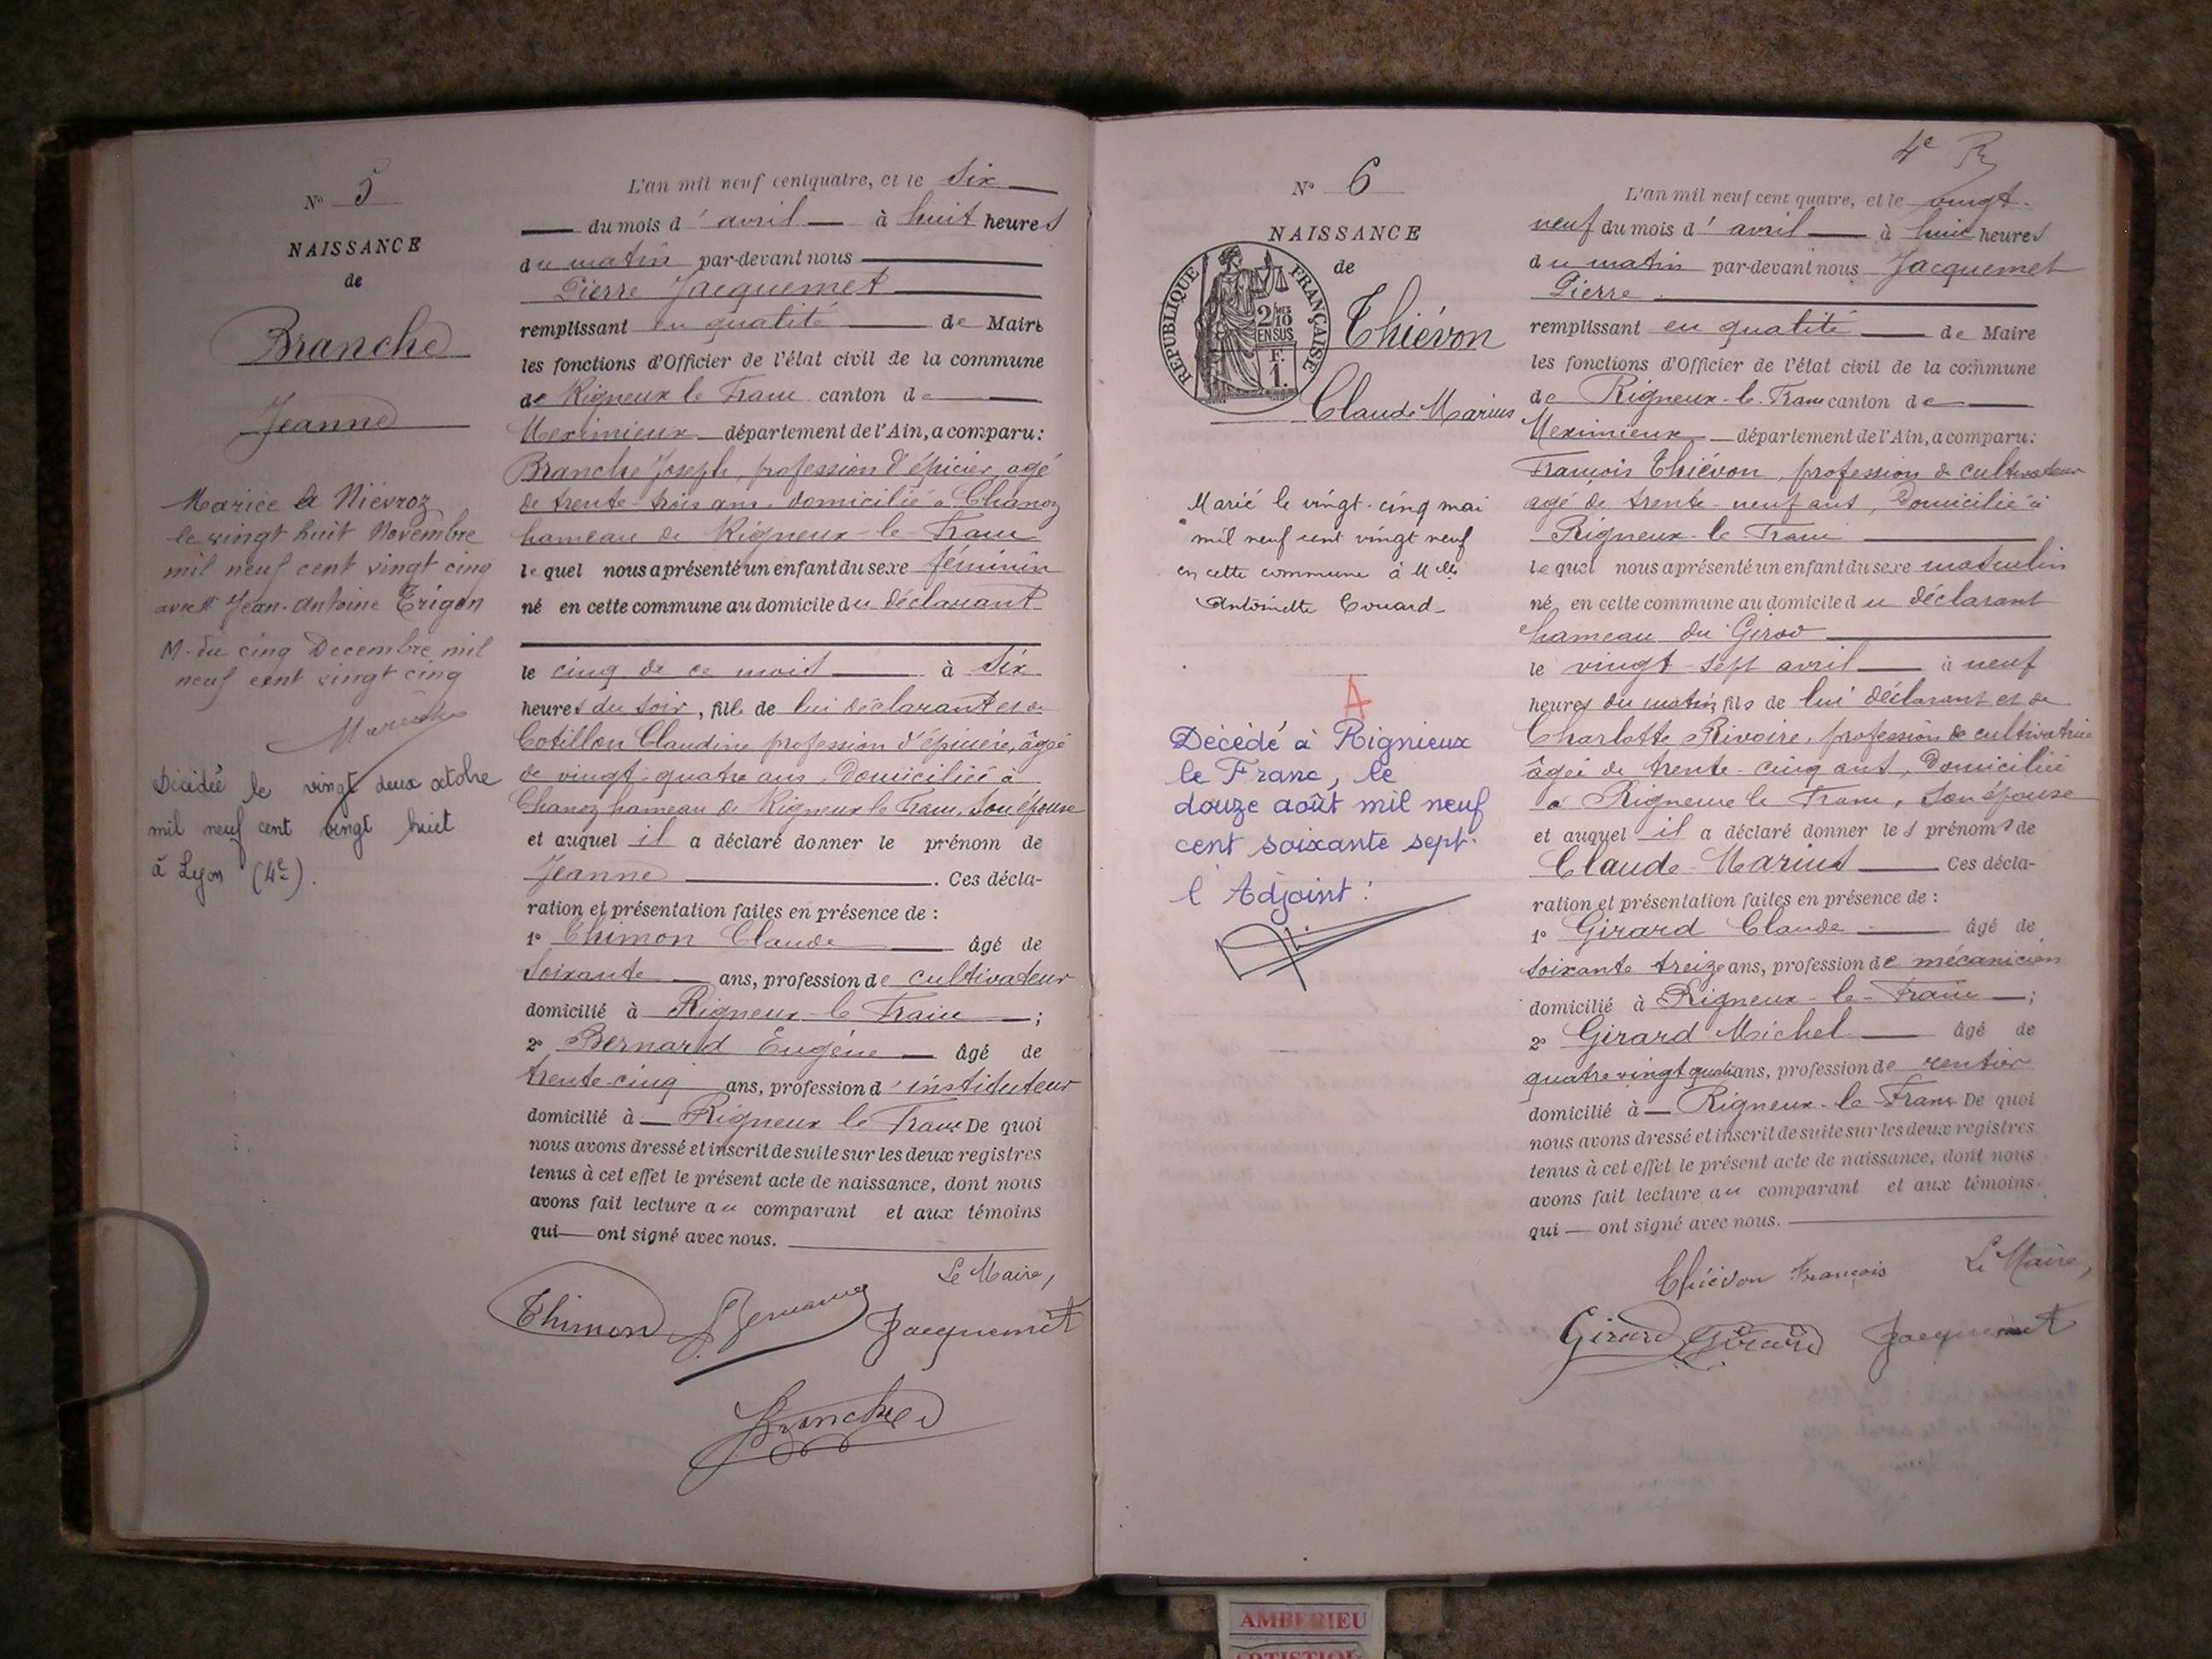 N° 5
NAISSANCE
de
Branche
Jeanne
Mariée à Niévroz
le vingt huit Novembre
mil neuf cent vingt cinq
avec Jean-Antoine Trigon
M. du cinq Decembre mil
neuf cent vingt cinq
Décédée le vingt deux octobre
mil neuf cent vingt huit
à Lyon (4e).
L'an mil neuf cent quatre, et le six
du mois d'avril à huit heures
du matin par-devant nous
Pierre Jacquemet
remplissant en qualité de Maire
les fonctions d'Officier de l'état civil de la commune
de Rigneux le Franc canton de
Meximieux département de l'Ain, a comparu:
Branche Joseph, profession d'épicier, agé
de trente-trois ans, domicilié à Chanoz
hameau de Rigneux-le-Franc
lequel nous a présenté un enfant du sexe féminin
né en cette commune au domicile du déclarant
le cinq de ce mois à six
heures du soir, fille de lui déclarant et de
Cotillon Claudine profession d'épicière, âgée
de vingt-quatre ans, domiciliée à
Chanoz hameau de Rigneux le Franc, son épouse
et auquel il a déclaré donner le prénom de
Jeanne. Ces décla-
ration et présentation faites en présence de :
1° Thimon Claude âgé de
soixante ans, profession de cultivateur
domicilié à Rigneux-le Franc ;
2° Bernard Eugène âgé de
trente-cinq ans, profession d'instituteur
domicilié à Rigneux le Franc De quoi
nous avons dressé et inscrit de suite sur les deux registres
tenus à cet effet le présent acte de naissance, dont nous
avons fait lecture au comparant et aux témoins
qui ont signé avec nous.
Le Maire,
Thimon Bernard Jacquemet
Branche
4e
N° 6
NAISSANCE
de
RÉPUBLIQUE FRANÇAISE
2/10 MES
EN SUS
F.
1.
Thiévon
Claude Marius
Marié le vingt-cinq mai
mil neuf cent vingt neuf
en cette commune à Melle
Antoinette Couard
A
Décédé à Rignieux
le Franc, le
douze août mil neuf
cent soixante sept.
l'Adjoint :
L'an mil neuf cent quatre, et le vingt-
neuf du mois d'avril à huit heures
du matin par-devant nous Jacquemet
Pierre
remplissant en qualité de Maire
les fonctions d'Officier de l'état civil de la commune
de Rigneux-le-Franc canton de
Meximieux département de l'Ain, a comparu:
François Thiévon, profession de cultivateur
agé de trente-neuf ans, domicilié à
Rigneux-le Franc
lequel nous a présenté un enfant du sexe masculin
né en cette commune au domicile du déclarant
hameau du Girod
le vingt-sept avril à neuf
heures du matin fils de lui déclarant et de
Charlotte Rivoire, profession de cultivatrice
âgée de trente-cinq ans, domiciliée
à Rigneux le Franc, son épouse
et auquel il a déclaré donner les prénoms de
Claude-Marius Ces décla-
ration et présentation faites en présence de :
1° Girard Claude âgé de
soixante treize ans, profession de mécanicien
domicilié à Rigneux-le-Franc ;
2° Girard Michel âgé de
quatre vingt quatre ans, profession de rentier
domicilié à Rigneux-le Franc De quoi
nous avons dressé et inscrit de suite sur les deux registres
tenus à cet effet le présent acte de naissance, dont nous
avons fait lecture au comparant et aux témoins
qui ont signé avec nous.
Thiévon François Le Maire,
Girard Girard Jacquemet
AMBERIEU